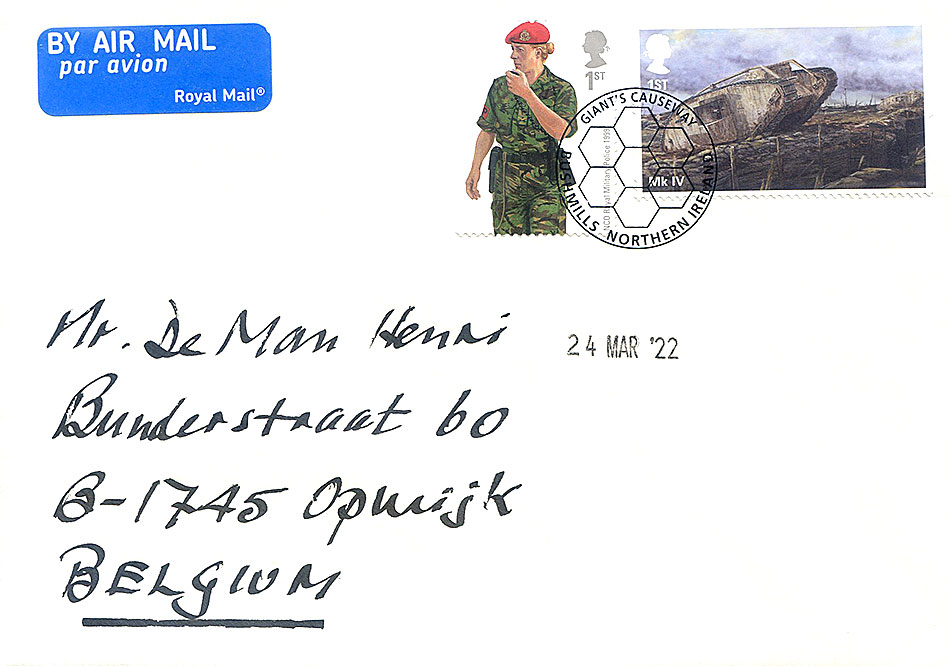 BY AIR MAIL
par avion
Royal Mail®
1ST
NCO Royal Military Police 1999
1ST
Mk IV
GIANT'S CAUSEWAY
BUSHMILLS NORTHERN IRELAND
24 MAR '22
Mr. De Man Henri
Bunderstraat 60
B-1745 Opwijk
BELGIUM